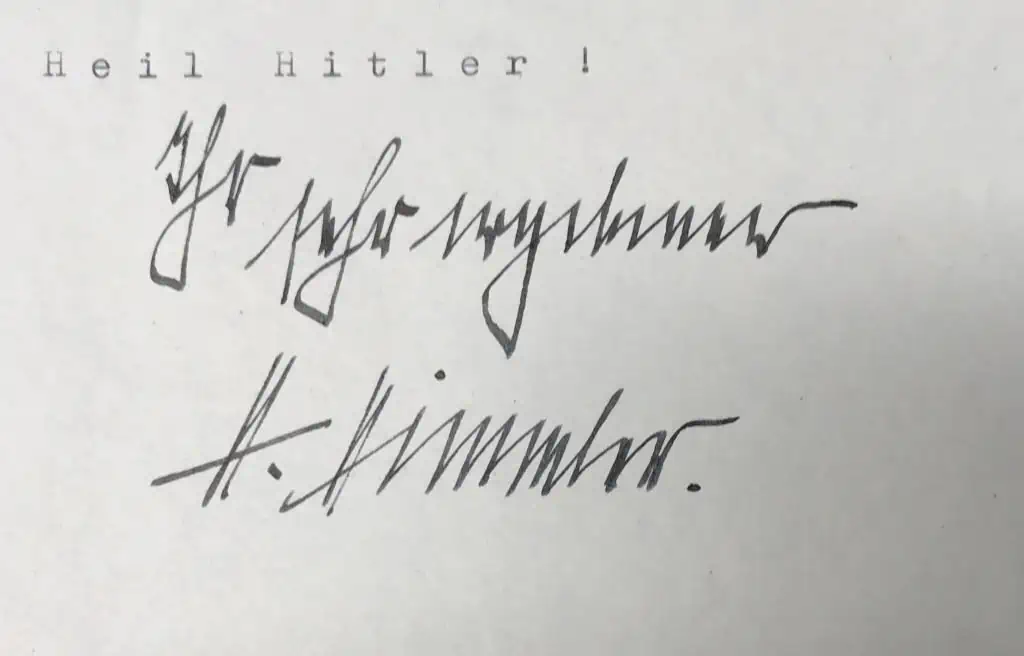 Heil Hitler!
Ihr sehr ergebener
H. Himmler.